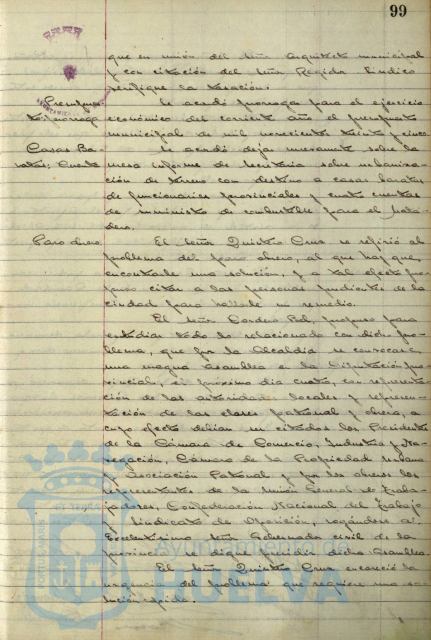 99
que en unión del señor arquitecto municipal
y con citación del señor Regidor Síndico
verifique la tasación.
Presupues-
to: prórroga
Se acordó prorrogar para el ejercicio
económico del corriente año el presupuesto
municipal de mil novecientos treinta y cinco
Casas Ba-
ratas: Cuenta
Se acordó dejar nuevamente sobre la
mesa informe de Secretaría sobre urbaniza-
ción de terreno con destino a casas baratas
de funcionarios provinciales y cuatro cuentas
de suministro de combustible para el Mata-
dero.
Paro obrero.
El señor Quintero Cruz se refirió al
problema del paro obrero, al que hay que
encontrarle una solución, y a tal efecto pro-
puso citar a las personas pudientes de la
ciudad para hallarle un remedio.
El señor Cordero Bel, propuso para
estudiar todo lo relacionado con dicho pro-
blema, que por la Alcaldía se convocase
una magna Asamblea en la Diputación pro-
vincial, el próximo día cuatro, con representa-
ción de las autoridades locales y represen-
tación de las clases patronal y obrera, a
cuyo efecto debían ser citados los Presidentes
de la Cámara de Comercio, Industria y Na-
vegación, Cámara de la Propiedad Urbana
y Asociación Patronal y por los obreros los
representantes de la Unión General de Traba-
jadores, Confederación Nacional del Trabajo
y Sindicato de Oposición, rogándose al
Excelentísimo señor Gobernador civil de la
provincia se digne presidir dicha Asamblea.
El señor Quintero Cruz encareció la
urgencia del problema que requiere una so-
lución rápida.
Ayuntamiento de
HUELVA